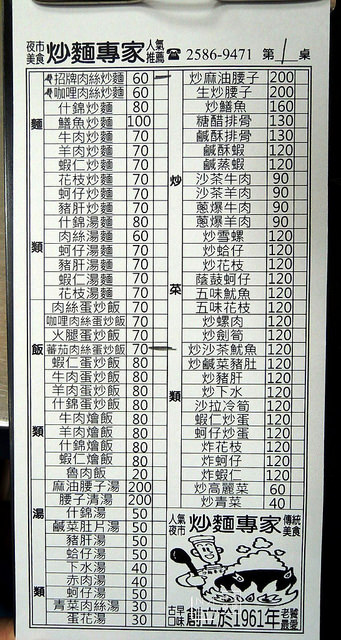 夜市美食 炒麵專家 人氣推薦 ☎ 2586-9471 第 1 桌
麵類
招牌肉絲炒麵 60
咖哩肉絲炒麵 60
什錦炒麵 80
鱔魚炒麵 100
牛肉炒麵 70
羊肉炒麵 70
蝦仁炒麵 70
花枝炒麵 70
蚵仔炒麵 70
豬肝炒麵 70
什錦湯麵 80
肉絲湯麵 60
蚵仔湯麵 70
豬肝湯麵 70
蝦仁湯麵 70
花枝湯麵 70
飯類
肉絲蛋炒飯 70
咖哩肉絲蛋炒飯 70
火腿蛋炒飯 70
蕃茄肉絲蛋炒飯 70
蝦仁蛋炒飯 80
牛肉蛋炒飯 80
羊肉蛋炒飯 80
什錦蛋炒飯 80
牛肉燴飯 80
羊肉燴飯 80
什錦燴飯 80
蝦仁燴飯 80
魯肉飯 20
湯類
麻油腰子湯 200
腰子清湯 200
什錦湯 50
鹹菜肚片湯 50
豬肝湯 50
蛤仔湯 50
下水湯 40
赤肉湯 40
蚵仔湯 50
青菜肉絲湯 30
蛋花湯 30
炒菜類
炒麻油腰子 200
生炒腰子 200
炒鱔魚 160
糖醋排骨 130
鹹酥排骨 130
鹹酥蝦 120
鹹蒸蝦 120
沙茶牛肉 90
沙茶羊肉 90
蔥爆牛肉 90
蔥爆羊肉 90
炒雪螺 120
炒蛤仔 120
炒花枝 120
蔭鼓蚵仔 120
五味魷魚 120
五味花枝 120
炒螺肉 120
炒劍筍 120
炒沙茶魷魚 120
炒鹹菜豬肚 120
炒豬肝 120
炒下水 120
沙拉冷筍 120
蝦仁炒蛋 120
蚵仔炒蛋 120
炸花枝 120
炸蚵仔 120
炸蝦仁 120
炒高麗菜 60
炒青菜 40
人氣夜市 炒麵專家 傳統美食
古早口味 創立於1961年 老饕最愛